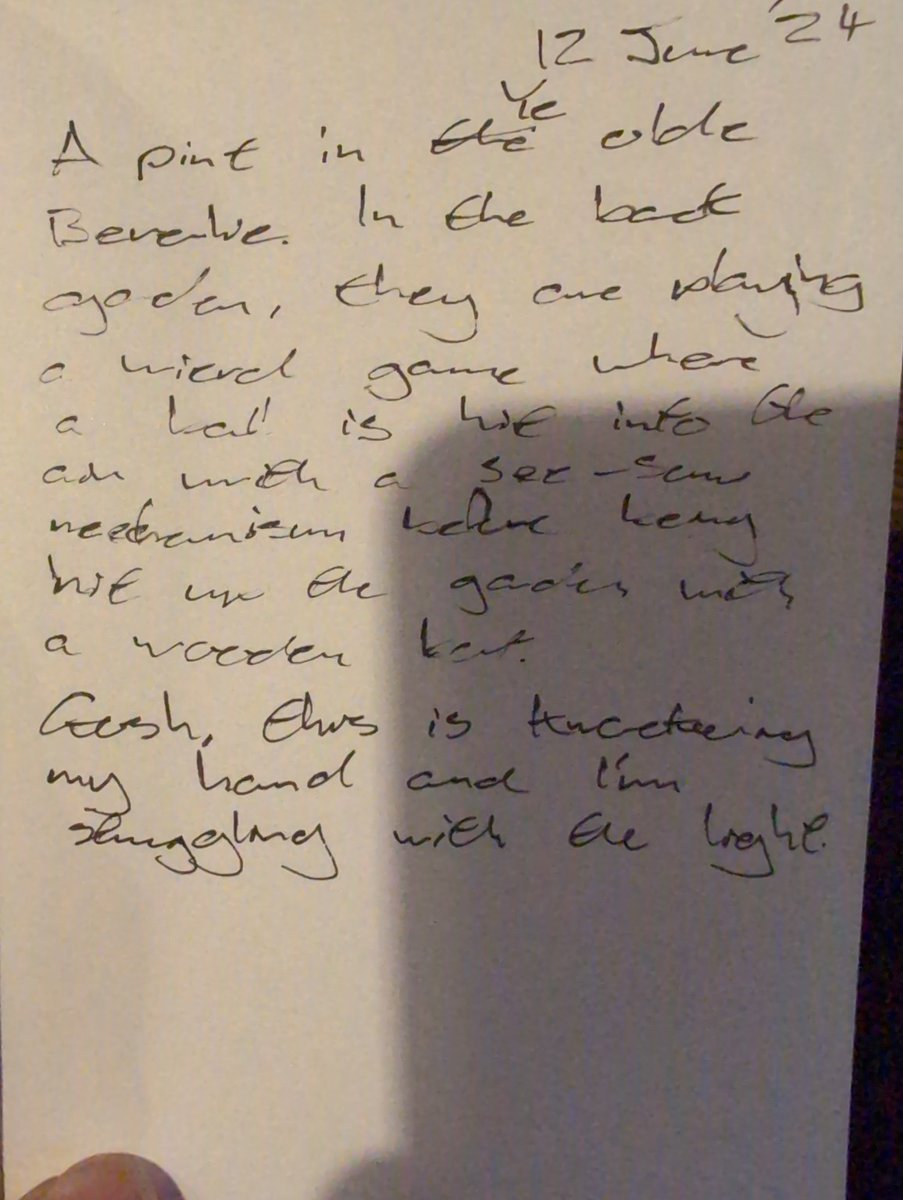 12 June '24
A pint in ~~the~~ Ye olde
Beverlie. In the back
garden, they are playing
a wierd game where
a ball is hit into the
air with a see-saw
mechanism before being
hit up the garden with
a wooden bat.
Gosh, this is knackering
my hand and I'm
struggling with the light.